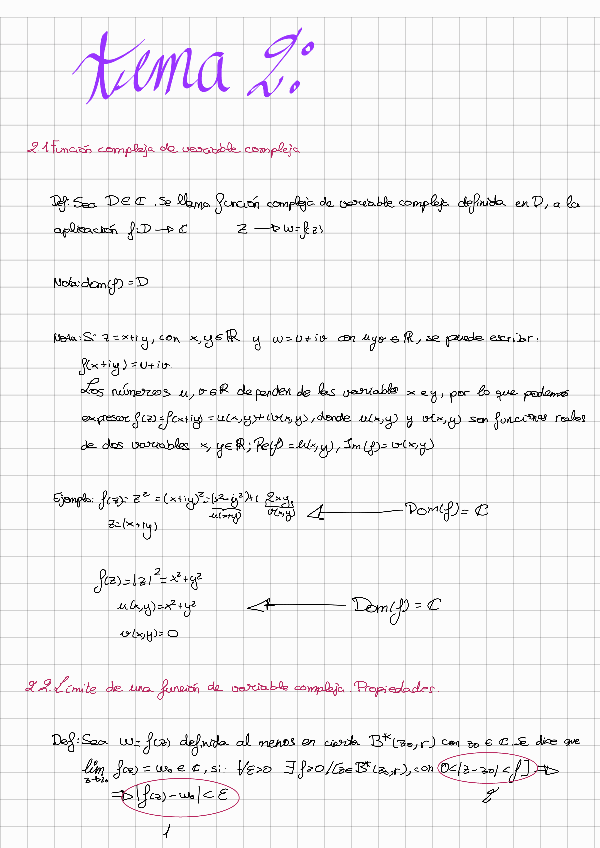 tema 2:
2.1 Función compleja de variable compleja
Def: Sea D∈ℂ. Se llama función compleja de variable compleja definida en D, a la
aplicación f: D → ℂ z → w=f(z)
Nota: dom(f) = D
Nota: Si z = x+iy, con x, y ∈ ℝ y w = u+iv con u y v ∈ ℝ, se puede escribir.
f(x+iy) = u+iv
Los números u, v ∈ ℝ dependen de las variables x e y, por lo que podemos
expresar f(z)=f(x+iy) = u(x,y)+iv(x,y), donde u(x,y) y v(x,y) son funciones reales
de dos variables x, y∈ℝ; Re(f) = u(x,y), Im(f) = v(x,y)
Ejemplo: f(z) = z² = (x+iy)² = (x²-y²)+i 2xy, Dom(f) = ℂ
u(x,y) v(x,y)
z=(x+iy)
f(z) = |z|² = x²+y²
u(x,y)=x²+y² Dom(f) = ℂ
v(x,y) = 0
2.2. Límite de una función de variable compleja. Propiedades.
Def: Sea w = f(z) definida al menos en cierta B*(z₀,r) con z₀ ∈ ℂ. Se dice que
lim f(z) = w₀ ∈ ℂ, si: ∀ε>0 ∃ δ>0 / [z∈B*(z₀,r), con 0<|z-z₀|<δ] ⇒
z→z₀
⇒ |f(z)-w₀| < ε
2
1